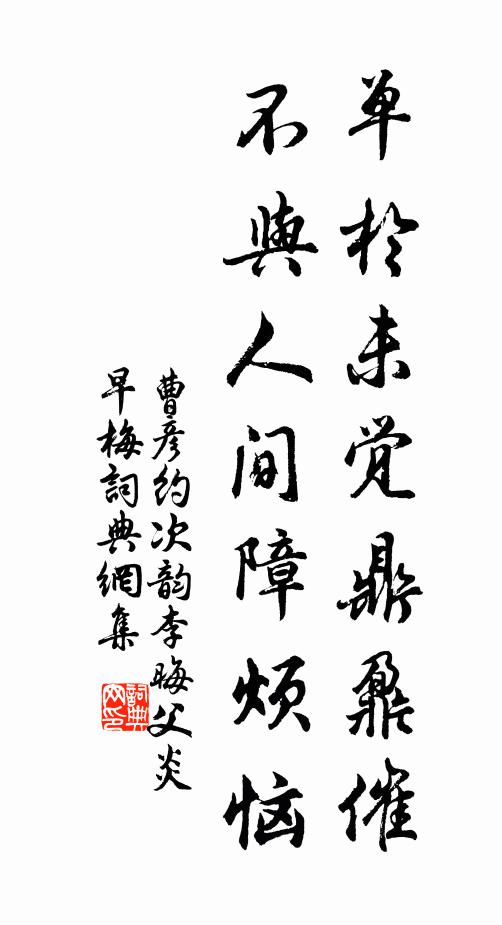 单於未觉鼎鼐催
不與人间障烦恼
曹彦约次韵李晦父炎
早梅詞典網集
詞典網印